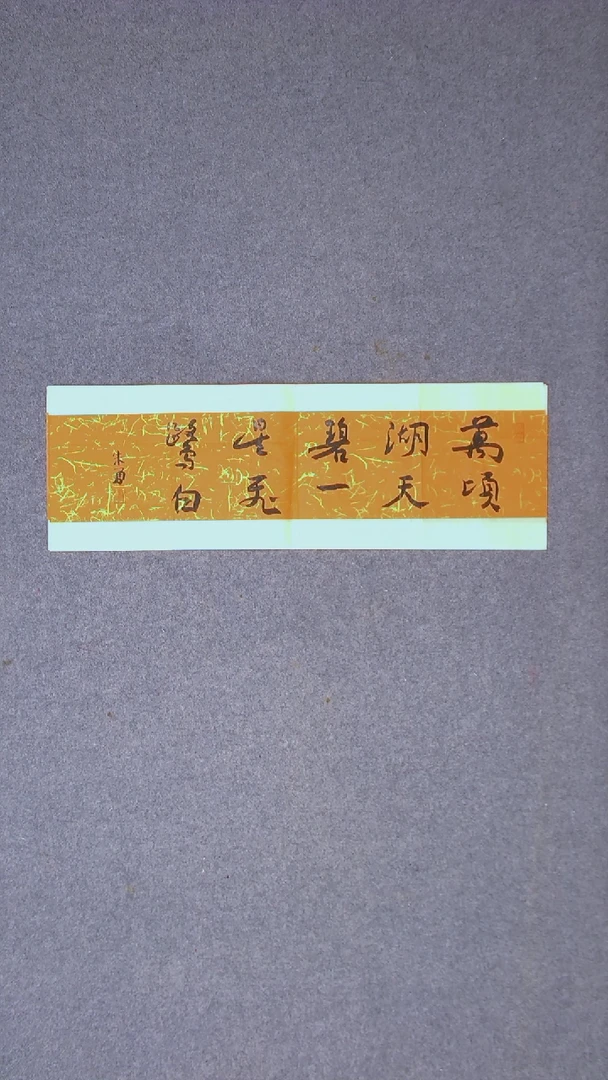 萬頃
湖天
碧一
星飛
鷺白
朱勇